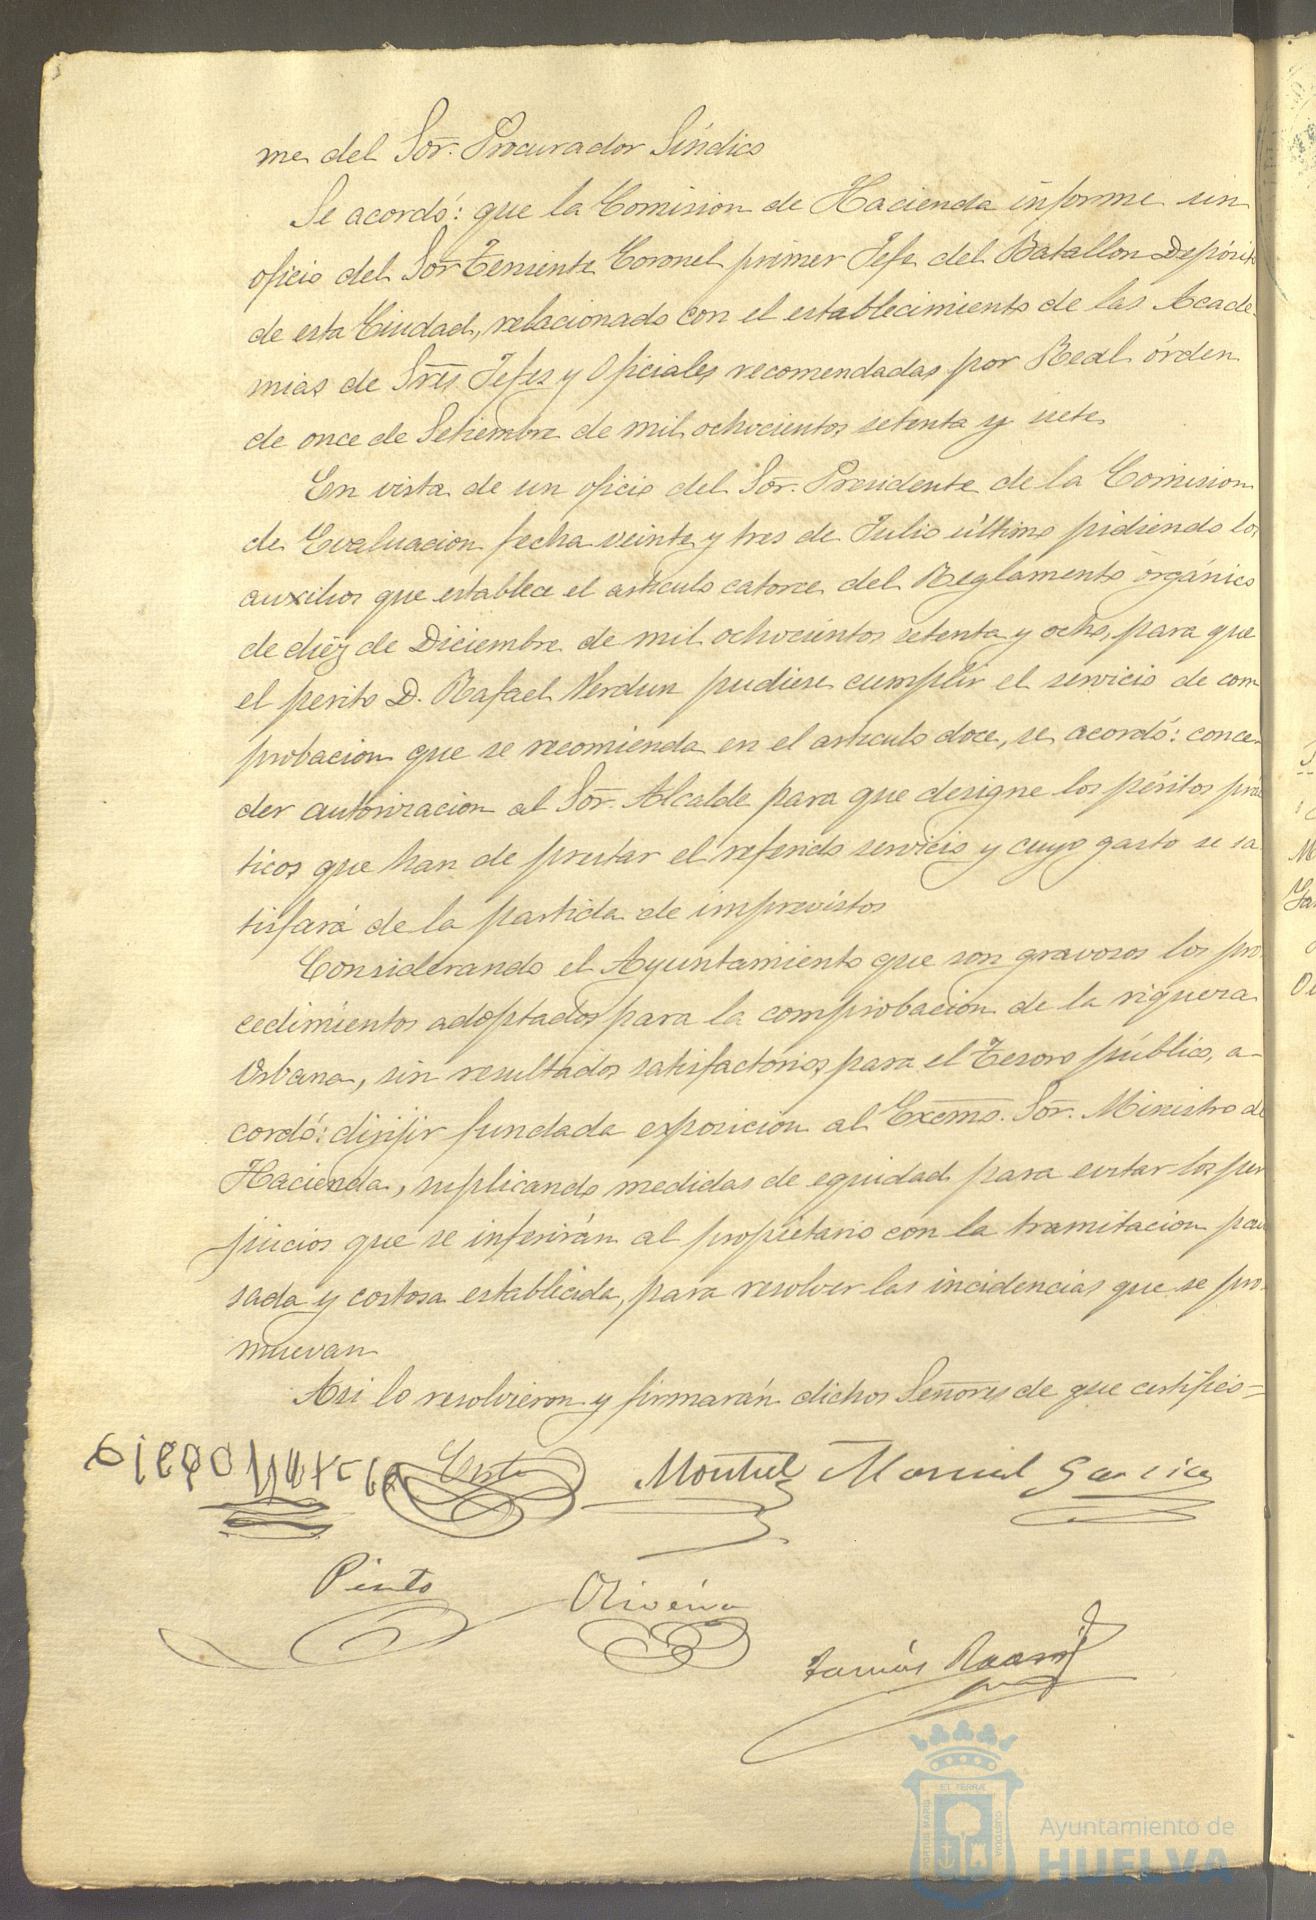 me del Sōr. Procurador Síndico
Se acordó: que la Comision de Hacienda informe un
oficio del Sōr Teniente Coronel primer Jefe del Batallon Depósito
de esta Ciudad, relacionado con el establecimiento de las Acade-
mias de Srēs Jefes y Oficiales recomendadas por Real órden
de once de Setiembre de mil ochocientos setenta y siete
En vista de un oficio del Sōr. Presidente de la Comision
de Evaluacion fecha veinte y tres de Julio último pidiendo los
auxilios que establece el articulo catorce del Reglamento orgánico
de diéz de Diciembre de mil ochocientos setenta y ocho, para que
el perito D. Rafael Verdun pudiese cumplir el servicio de com
probacion que se recomienda en el articulo doce, se acordó: conce-
der autorizacion al Sōr. Alcalde para que designe los péritos prác
ticos que han de prestar el referido servicio y cuyo gasto se sa
tisfará de la partida de imprevistos
Considerando el Ayuntamiento que son gravosos los pro
cedimientos adoptados para la comprobacion de la riqueza
Urbana, sin resultados satisfactorios para el Tesoro público, a-
cordó: dirijir fundada exposicion al Excmo. Sōr. Ministro de
Hacienda, suplicando medidas de equidad para evitar los per
juicios que se inferirán al propietario con la tramitacion pau
sada y costosa establecida, para resolver las incidencias que se pro-
muevan
Asi lo resolvieron y firmarán dichos Señores de que certifico=
Diego Garcia Montiel Manuel Garcia
Pinto Oliveira
Tomás
PORTUS MARIS ET TERRÆ CUSTODIA
Ayuntamiento de
HUELVA